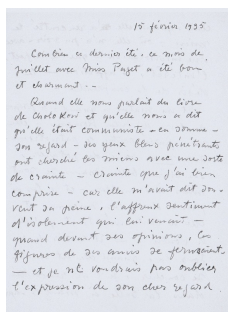 15 février 1935
Combien ce dernier été, ce mois de
juillet avec Miss Paget a été bon
et charmant...
Quand elle nous parlait du livre
de
qu'elle était communiste - en somme -
son regard - ses yeux bleus pénétrants
ont cherché les miens avec une sorte
de crainte - crainte que j'ai bien
comprise - car elle m'avait dit sou-
vent sa peine, l'affreux sentiment
d'isolement qui lui venait -
quand devant ses opinions, les
figures de ses amis se fermaient
- et je ne voudrais pas oublier
l'expression de son cher regard